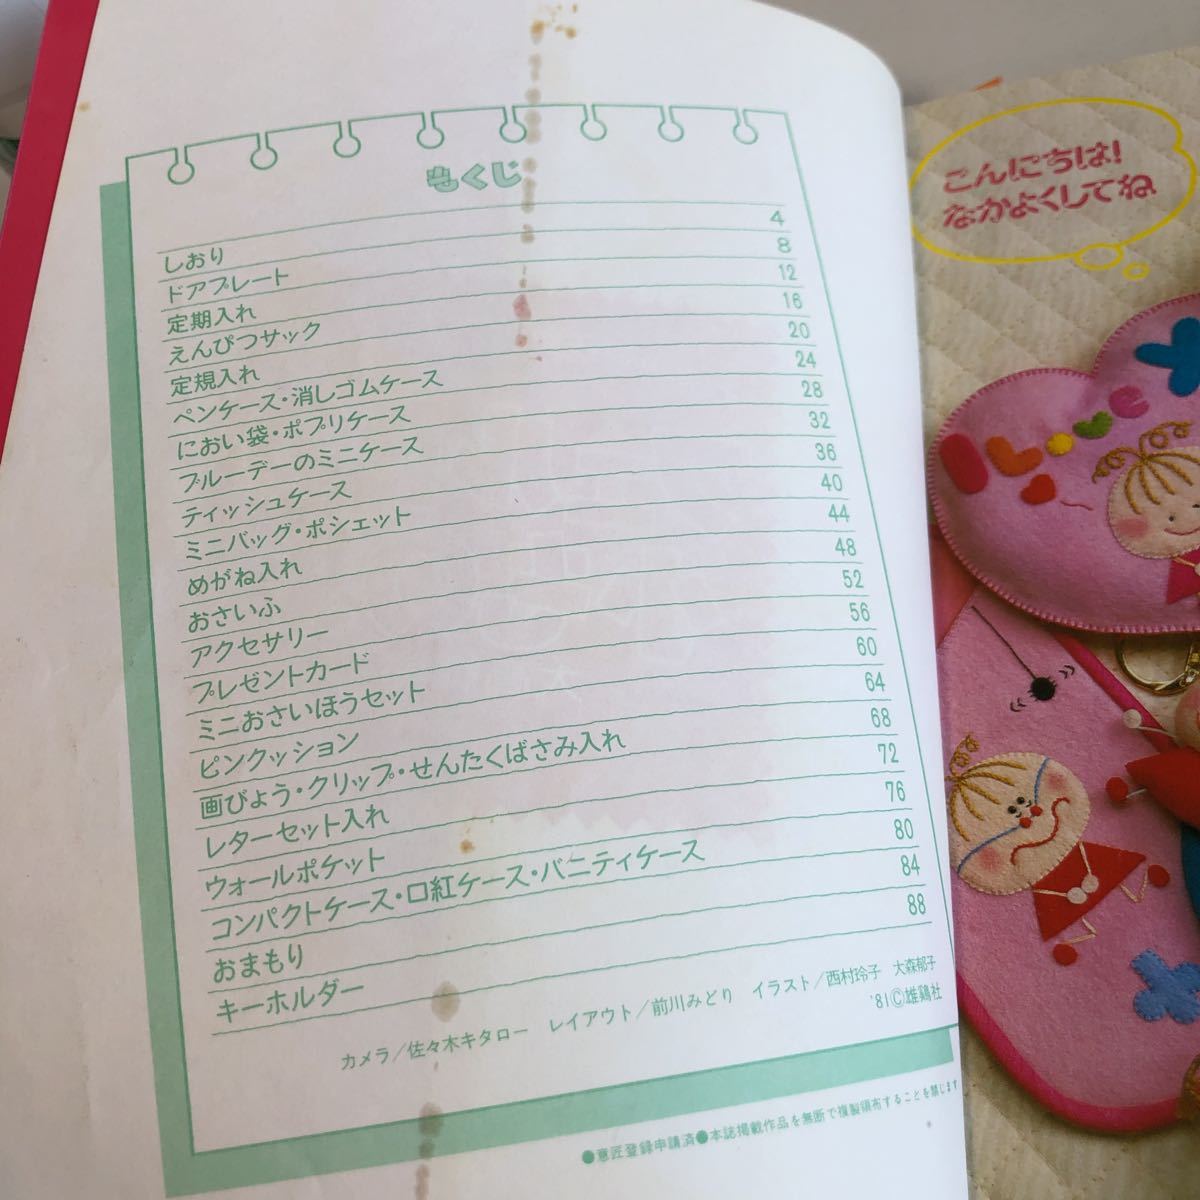 もくじ
しおり 4
ドアプレート 8
定期入れ 12
えんぴつサック 16
定規入れ 20
ペンケース・消しゴムケース 24
におい袋・ポプリケース 28
ブルーデーのミニケース 32
ティッシュケース 36
ミニバッグ・ポシェット 40
めがね入れ 44
おさいふ 48
アクセサリー 52
プレゼントカード 56
ミニおさいほうセット 60
ピンクッション 64
画びょう・クリップ・せんたくばさみ入れ 68
レターセット入れ 72
ウォールポケット 76
コンパクトケース・口紅ケース・バニティケース 80
おまもり 84
キーホルダー 88
カメラ/佐々木キタロー レイアウト/前川みどり イラスト/西村玲子 大森郁子
'81©雄鶏社
●意匠登録申請済●本誌掲載作品を無断で複製頒布することを禁じます
こんにちは!
なかよくしてね